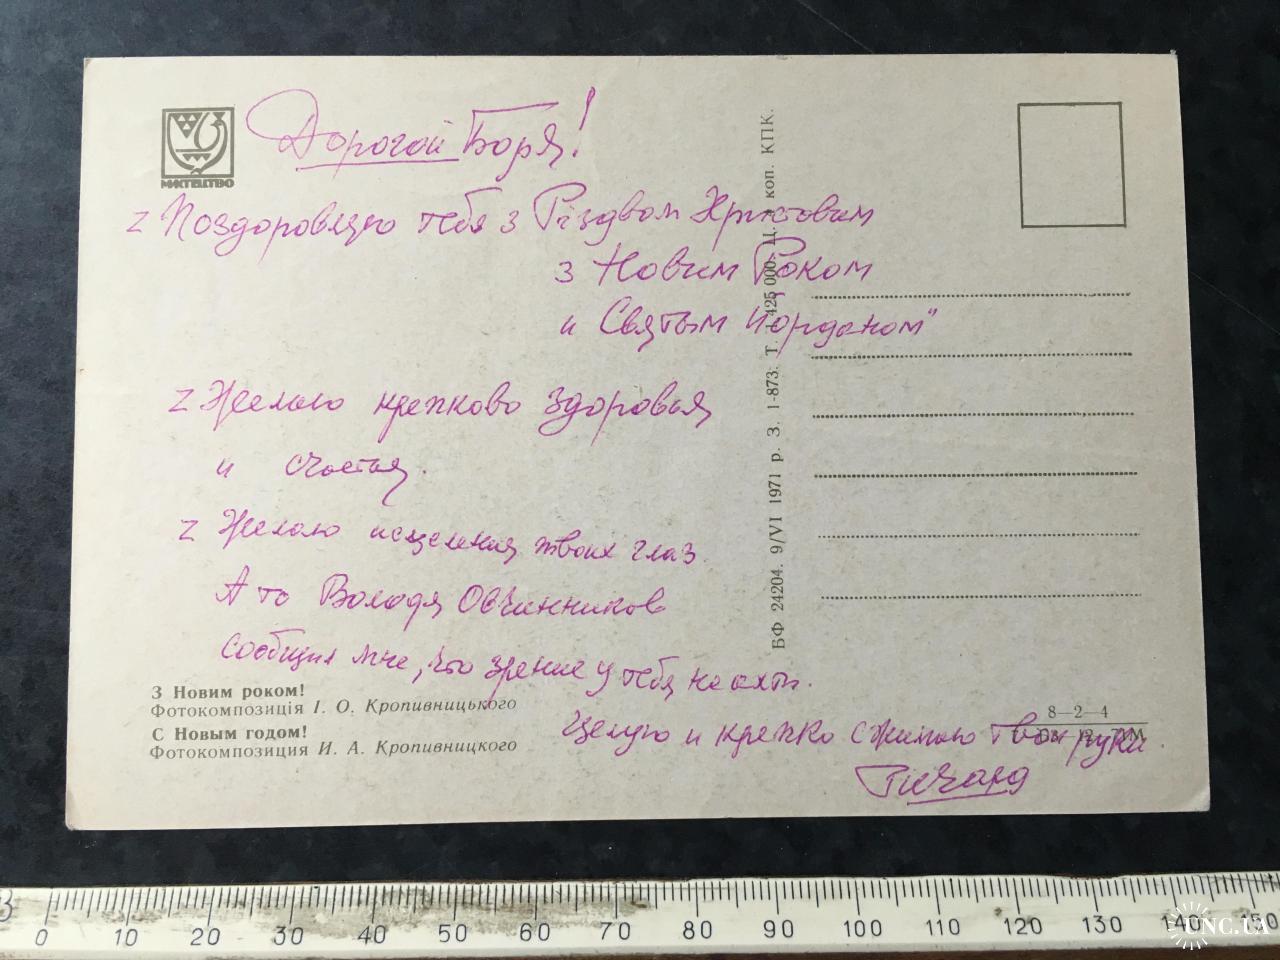 Дорогой Боря!
МИСТЕЦТВО
z Поздоровляю тебя з Різдвом Христовим
з Новим Роком
и Святым Иорданом"
z Желаю крепково здоровья
и счастья.
z Желаю исцеления твоих глаз.
А то Володя Овчинников
сообщил мне, что зрение у тебя не ахти.
Целую и крепко сжимаю Твои руки
Ричард
З Новим роком!
Фотокомпозиція І. О. Кропивницького
С Новым годом!
Фотокомпозиция И. А. Кропивницкого
БФ 24204. 9/VI 1971 р. З. 1-873. Т. 425 000. Ц. коп. КПК.
8—2—4
0 10 20 30 40 50 60 70 80 90 100 110 120 130 140 150
UNC.UA